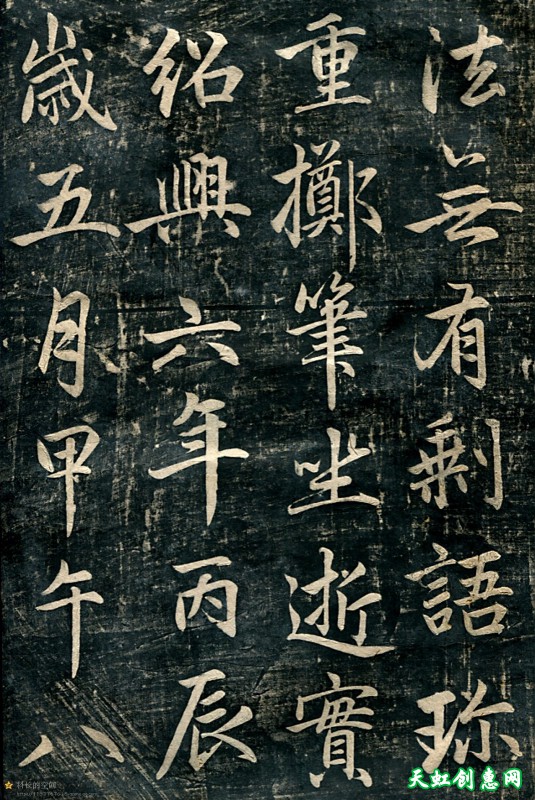 法無有剩語珎
重擲筆坐逝實
紹興六年丙辰
歲五月甲午八
天虹创惠网